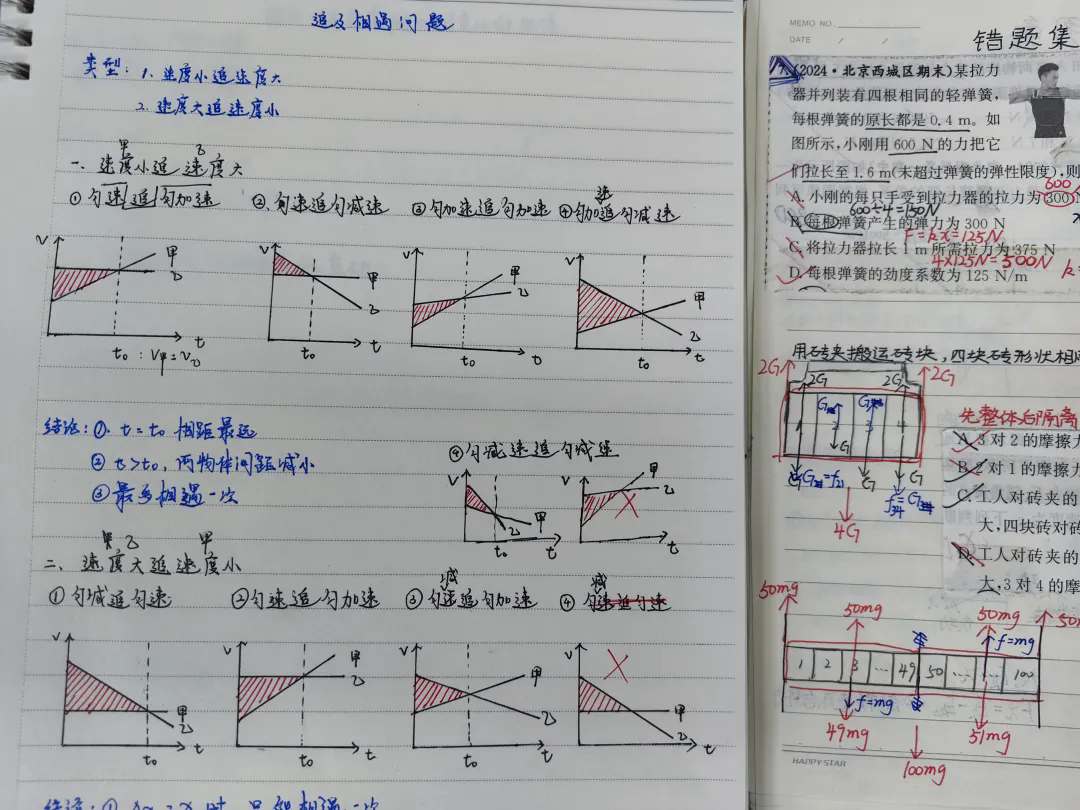 追及相遇问题
类型: 1. 速度小追速度大
2. 速度大追速度小
甲 乙
一. 速度小追 速度大
① 匀速追匀加速 ② 匀速追匀减速 ③ 匀加速追匀加速 ④ 匀加速追匀减速
V 甲 乙 t t₀ : V甲=V乙
V 甲 乙 t t₀
V 甲 乙 t t₀
V 甲 乙 t t₀
结论: ①. t=t₀ 相距最远
② t>t₀, 两物体间距减小
③ 最多相遇一次
④ 匀减速追匀减速
V 甲 乙 t t₀
V 甲 乙 t
乙 甲
二、速度大追速度小
① 匀减追匀速 ② 匀速追匀加速 ③ 匀减速追匀加速 ④ 匀减速追匀速
V 甲 乙 t t₀
V 甲 乙 t t₀
V 甲 乙 t t₀
V 甲 乙 t
MEMO NO.
DATE / /
错题集
(2024·北京西城区期末)某拉力
器并列装有四根相同的轻弹簧,
每根弹簧的原长都是0.4 m。如
图所示,小刚用600 N的力把它
们拉长至1.6 m(未超过弹簧的弹性限度),则
600
A. 小刚的每只手受到拉力器的拉力为300
600÷4=150N
B. 每根弹簧产生的弹力为300 N
F=kx=125N
C. 将拉力器拉长1 m所需拉力为375 N
4×125N=500N
D. 每根弹簧的劲度系数为125 N/m
k=
用砖夹搬运砖块,四块砖形状相
2G 2G 2G 2G
1 2 3 4
G G G G
f₂₁
4G
先整体后隔离
A. 3对2的摩擦
B. 2对1的摩擦
C. 工人对砖夹的
大,四块砖对砖
D. 工人对砖夹的
大,3对4的摩
50mg 50mg 50mg
f=mg
1 2 3 … 49 50 … … 100
f=mg
49mg 51mg
100mg
HAPPY STAR